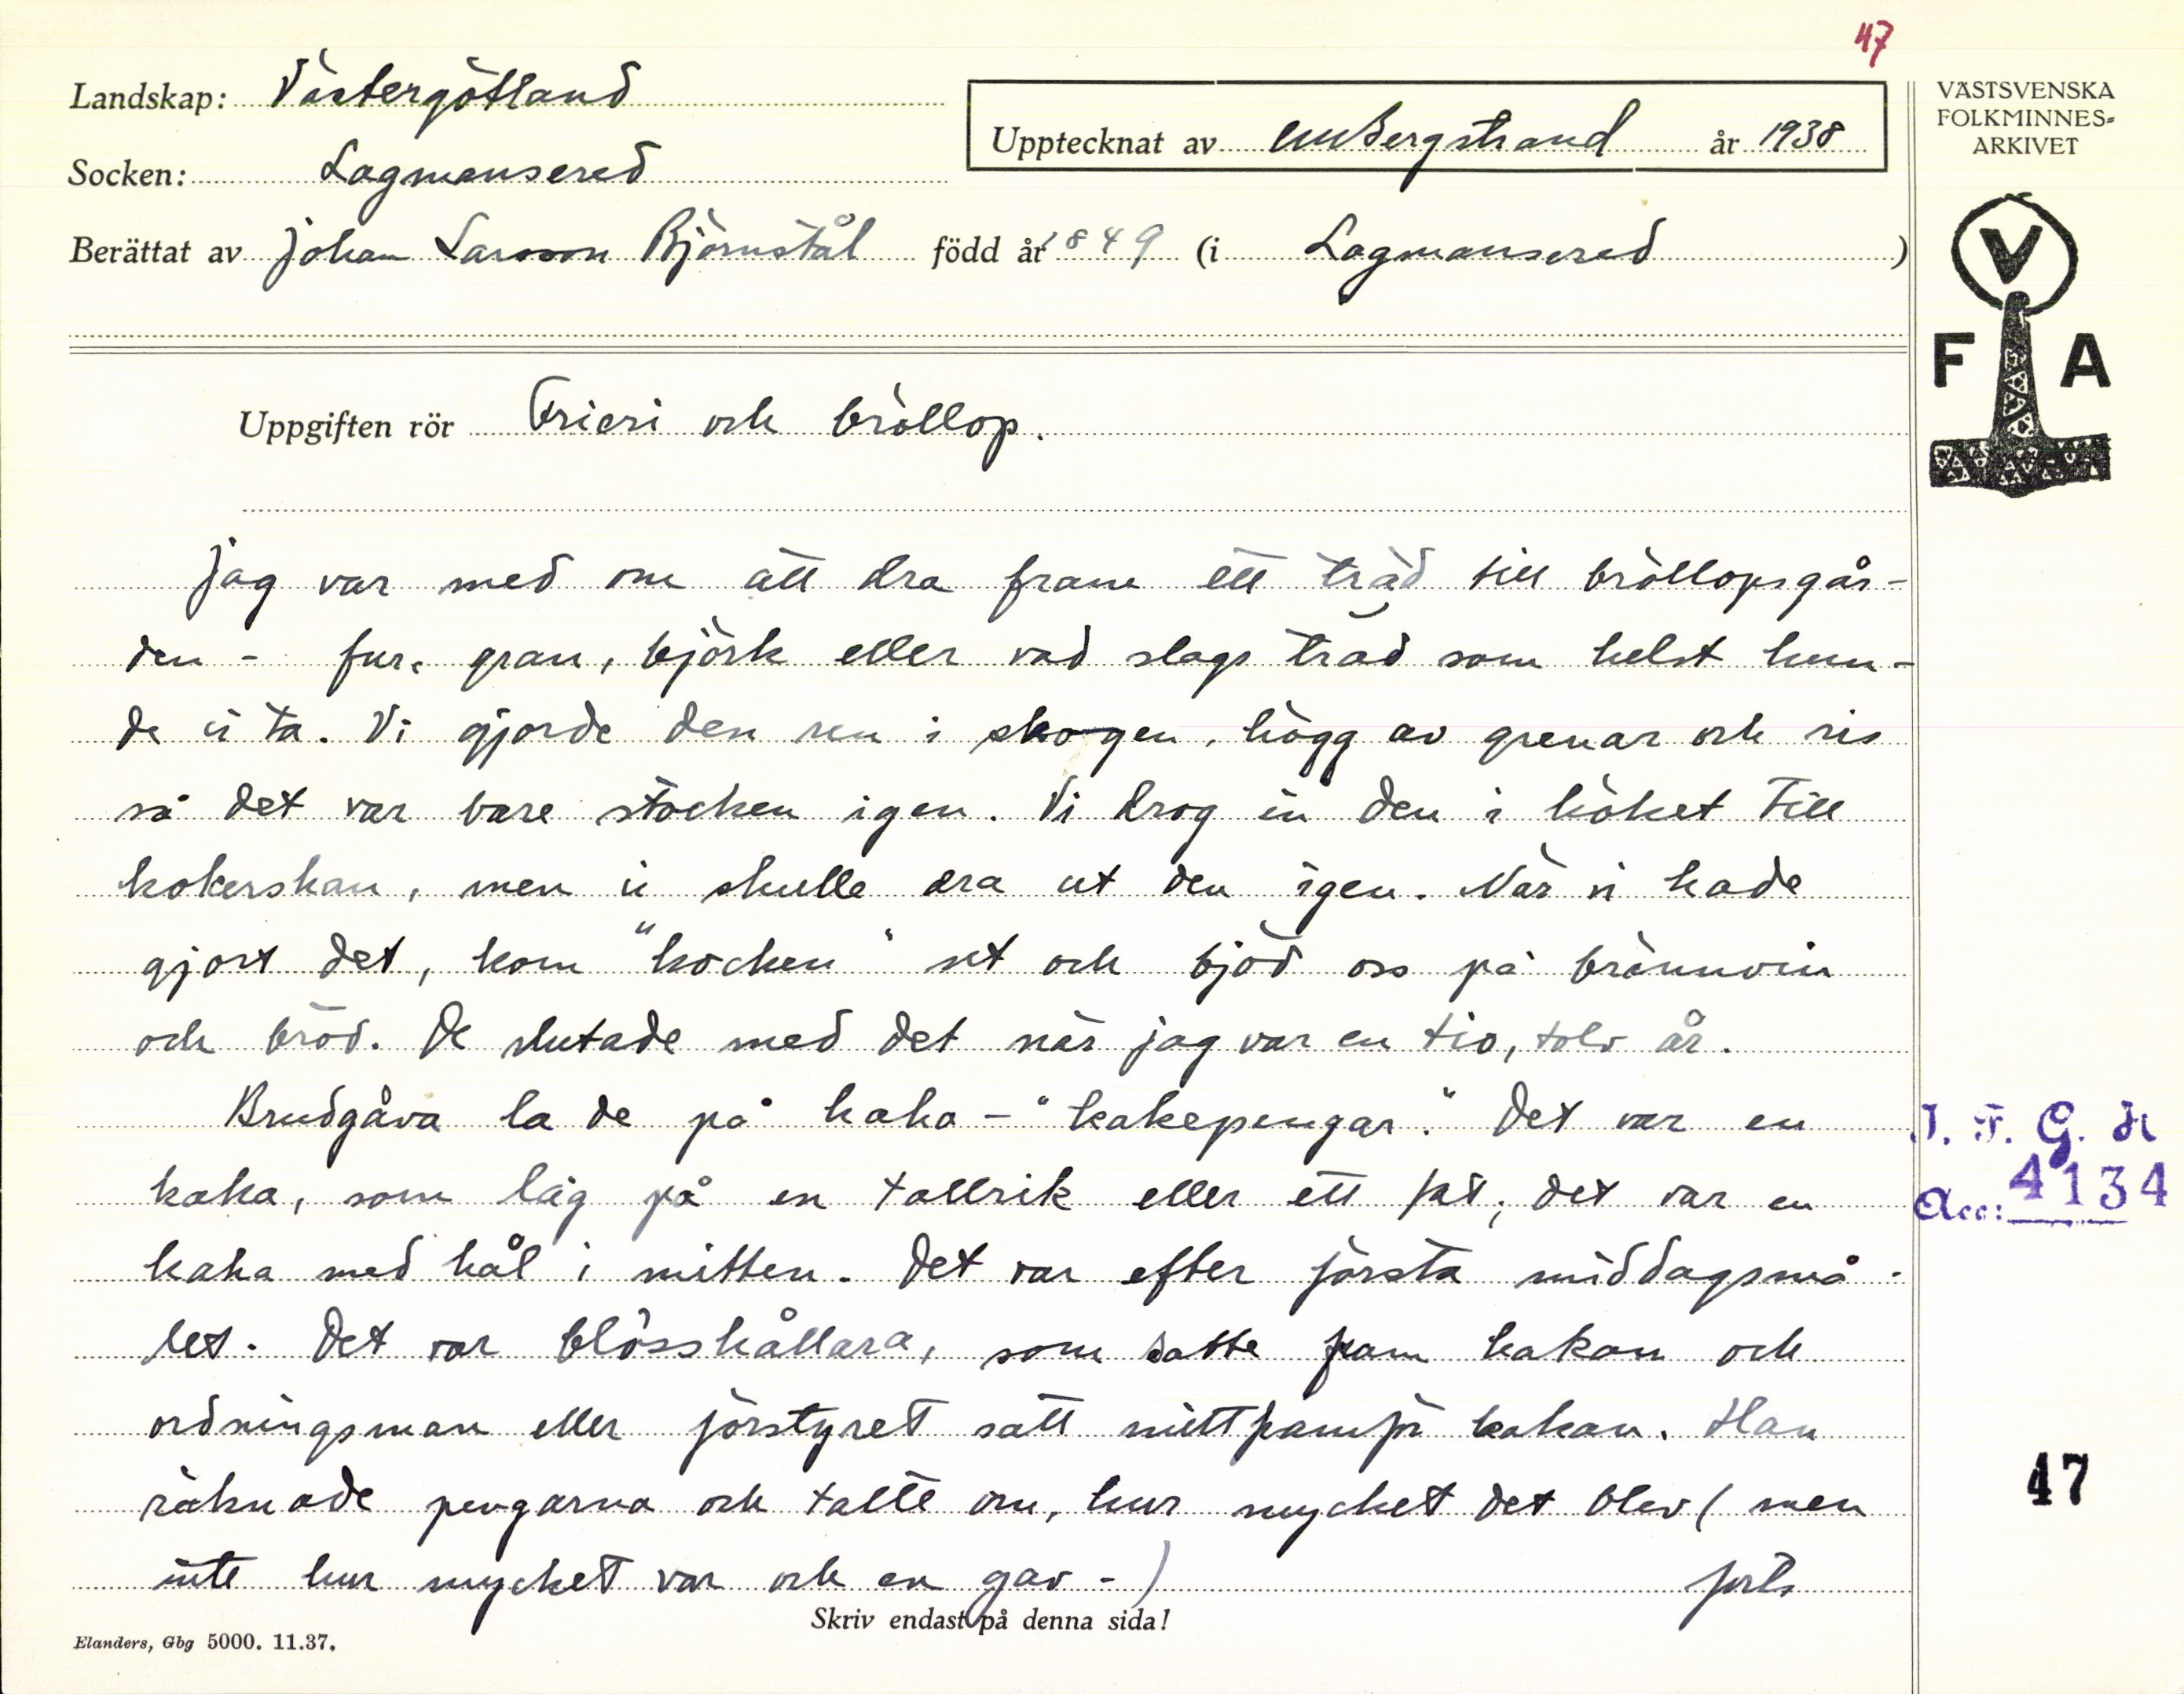 47
Landskap: Västergötland
Upptecknat av CMBergstrand år 1938
Socken: Lagmansered
Berättat av Johan Larsson Björnstål född år 1849 (i Lagmansered)
VÄSTSVENSKA
FOLKMINNES=
ARKIVET
V
F A
Uppgiften rör Frieri och bröllop.
Jag var med om att dra fram ett träd till bröllopsgår-
den - fur, gran, björk eller vad slags träd som helst kun-
de vi ta. Vi gjorde den ren i skogen, högg av grenar och ris
så det var bare stocken igen. Vi drog in den i köket till
kokerskan, men vi skulle dra ut den igen. När vi hade
gjort det, kom "kocken" ut och bjöd oss på brännvin
och bröd. De slutade med det när jag var en tio, tolv år.
Brudgåva la de på kaka - "kakepengar." Det var en
kaka, som låg på en tallrik eller ett fat, det var en
kaka med hål i mitten. Det var efter första middagsmå-
let. Det var blosshållara, som satte fram kakan och
ordningsman eller förstyret satt mitt framför kakan. Han
räknade pengarna och talte om, hur mycket det blev (men
inte hur mycket var och en gav -)
forts
I. F. G. H
Acc: 4134
47
Skriv endast på denna sida!
Elanders, Gbg 5000. 11.37.